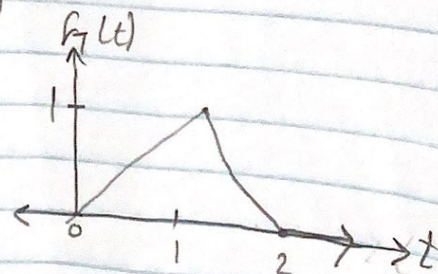 f_T(t)
1
0
1
2
t